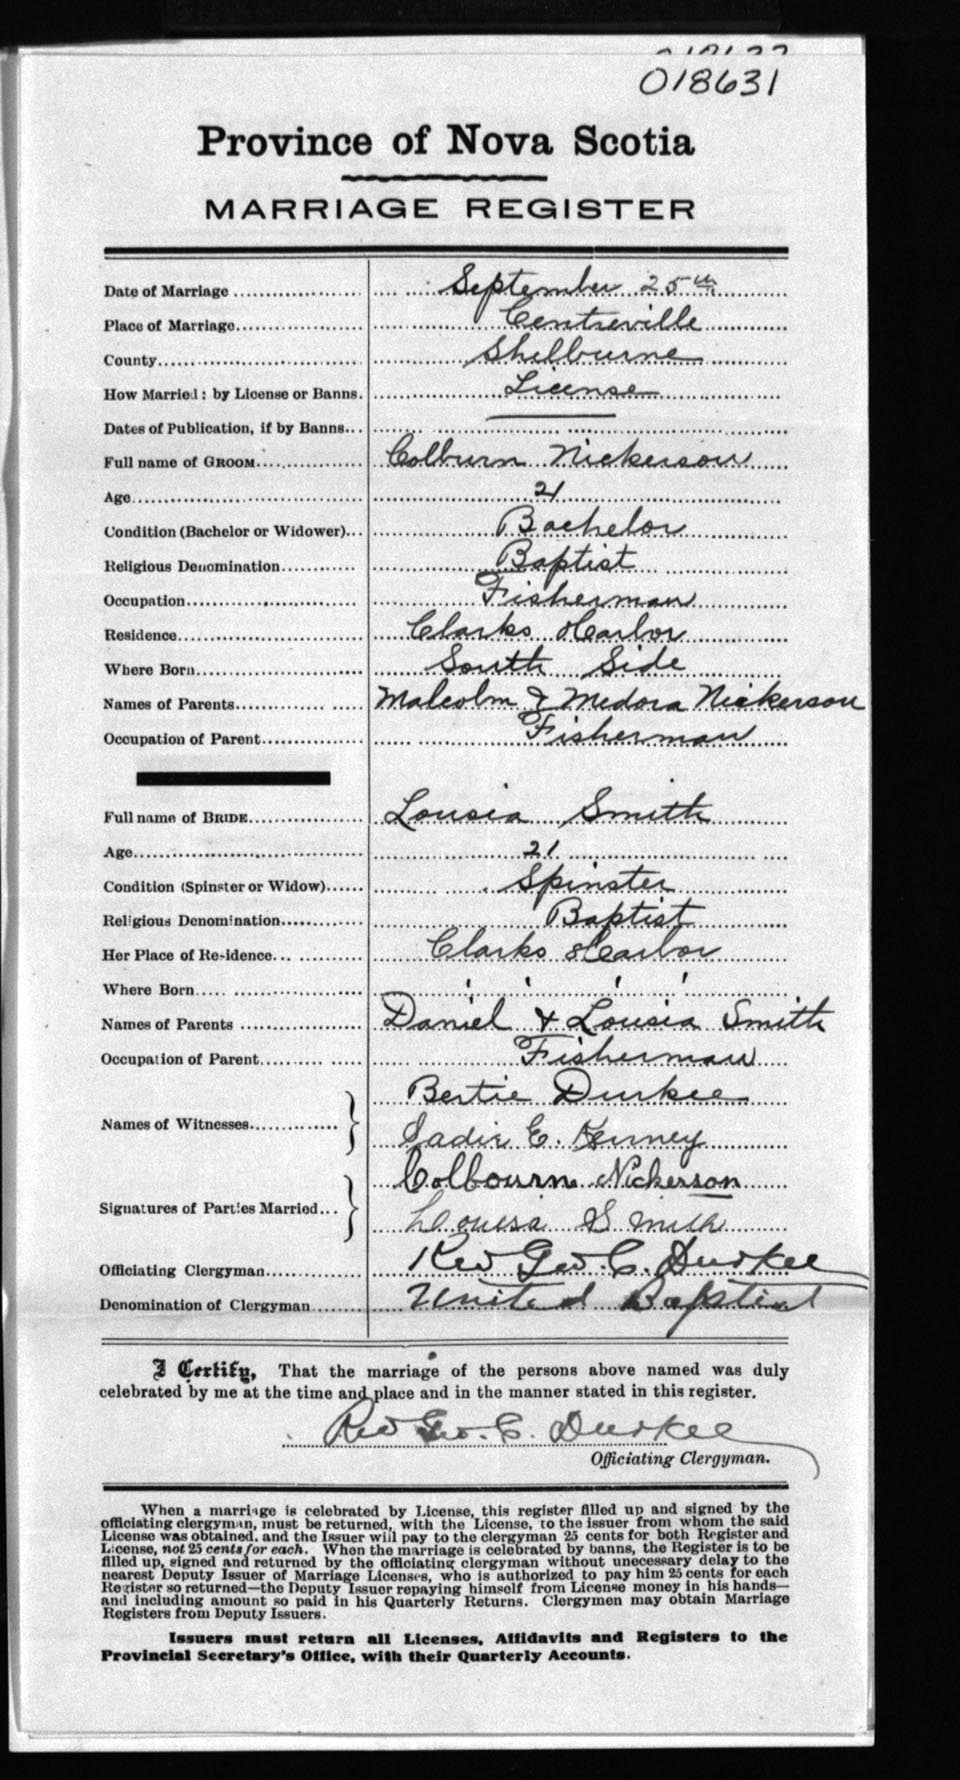 018631
Province of Nova Scotia
MARRIAGE REGISTER
Date of Marriage September 25th
Place of Marriage Centreville
County Shelburne
How Married: by License or Banns. License
Dates of Publication, if by Banns
Full name of GROOM Colburn Nickerson
Age 21
Condition (Bachelor or Widower) Bachelor
Religious Denomination Baptist
Occupation Fisherman
Residence Clarks Harbor
Where Born South Side
Names of Parents Malcolm & Medora Nickerson
Occupation of Parent Fisherman
Full name of BRIDE Lousia Smith
Age 21
Condition (Spinster or Widow) Spinster
Religious Denomination Baptist
Her Place of Residence Clarks Harbor
Where Born ' ' ' '
Names of Parents Daniel & Lousia Smith
Occupation of Parent Fisherman
Names of Witnesses Bertie Durkee
Sadie E. Kenney
Signatures of Parties Married Colbourn Nickerson
Louisa Smith
Officiating Clergyman Rev Geo. C. Durkee
Denomination of Clergyman United Baptist
I Certify, That the marriage of the persons above named was duly
celebrated by me at the time and place and in the manner stated in this register.
Rev Geo. C. Durkee
Officiating Clergyman.
When a marriage is celebrated by License, this register filled up and signed by the
officiating clergyman, must be returned, with the License, to the issuer from whom the said
License was obtained, and the Issuer will pay to the clergyman 25 cents for both Register and
License, not 25 cents for each. When the marriage is celebrated by banns, the Register is to be
filled up, signed and returned by the officiating clergyman without unnecessary delay to the
nearest Deputy Issuer of Marriage Licenses, who is authorized to pay him 25 cents for each
Register so returned—the Deputy Issuer repaying himself from License money in his hands—
and including amount so paid in his Quarterly Returns. Clergymen may obtain Marriage
Registers from Deputy Issuers.
Issuers must return all Licenses, Affidavits and Registers to the
Provincial Secretary's Office, with their Quarterly Accounts.